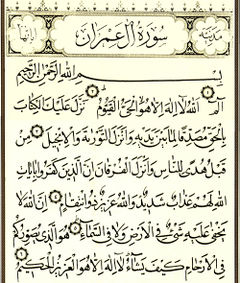 مَدَنِيَّة سُورَةُ آلِ عِمْرَان
بِسْمِ اللهِ الرَّحْمٰنِ الرَّحِيمِ
الٓمٓ اَللهُ لَا اِلٰهَ اِلَّا هُوَ الْحَىُّ الْقَيُّومُ نَزَّلَ عَلَيْكَ الْكِتَابَ
بِالْحَقِّ مُصَدِّقًا لِمَا بَيْنَ يَدَيْهِ وَاَنْزَلَ التَّوْرٰيةَ وَالْاِنْجِيلَ مِنْ
قَبْلُ هُدًى لِلنَّاسِ وَاَنْزَلَ الْفُرْقَانَ اِنَّ الَّذِينَ كَفَرُوا بِاٰيَاتِ
اللهِ لَهُمْ عَذَابٌ شَدِيدٌ وَاللهُ عَزِيزٌ ذُو انْتِقَامٍ اِنَّ اللهَ لَا
يَخْفٰى عَلَيْهِ شَىْءٌ فِى الْاَرْضِ وَلَا فِى السَّمَاءِ هُوَ الَّذِى يُصَوِّرُكُمْ
فِى الْاَرْحَامِ كَيْفَ يَشَاءُ لَا اِلٰهَ اِلَّا هُوَ الْعَزِيزُ الْحَكِيمُ